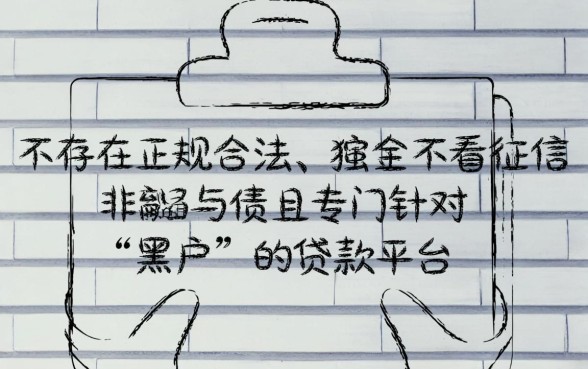 不存在正规合法、全不看征信
非与债且专门针对
“黑户”的贷款平台